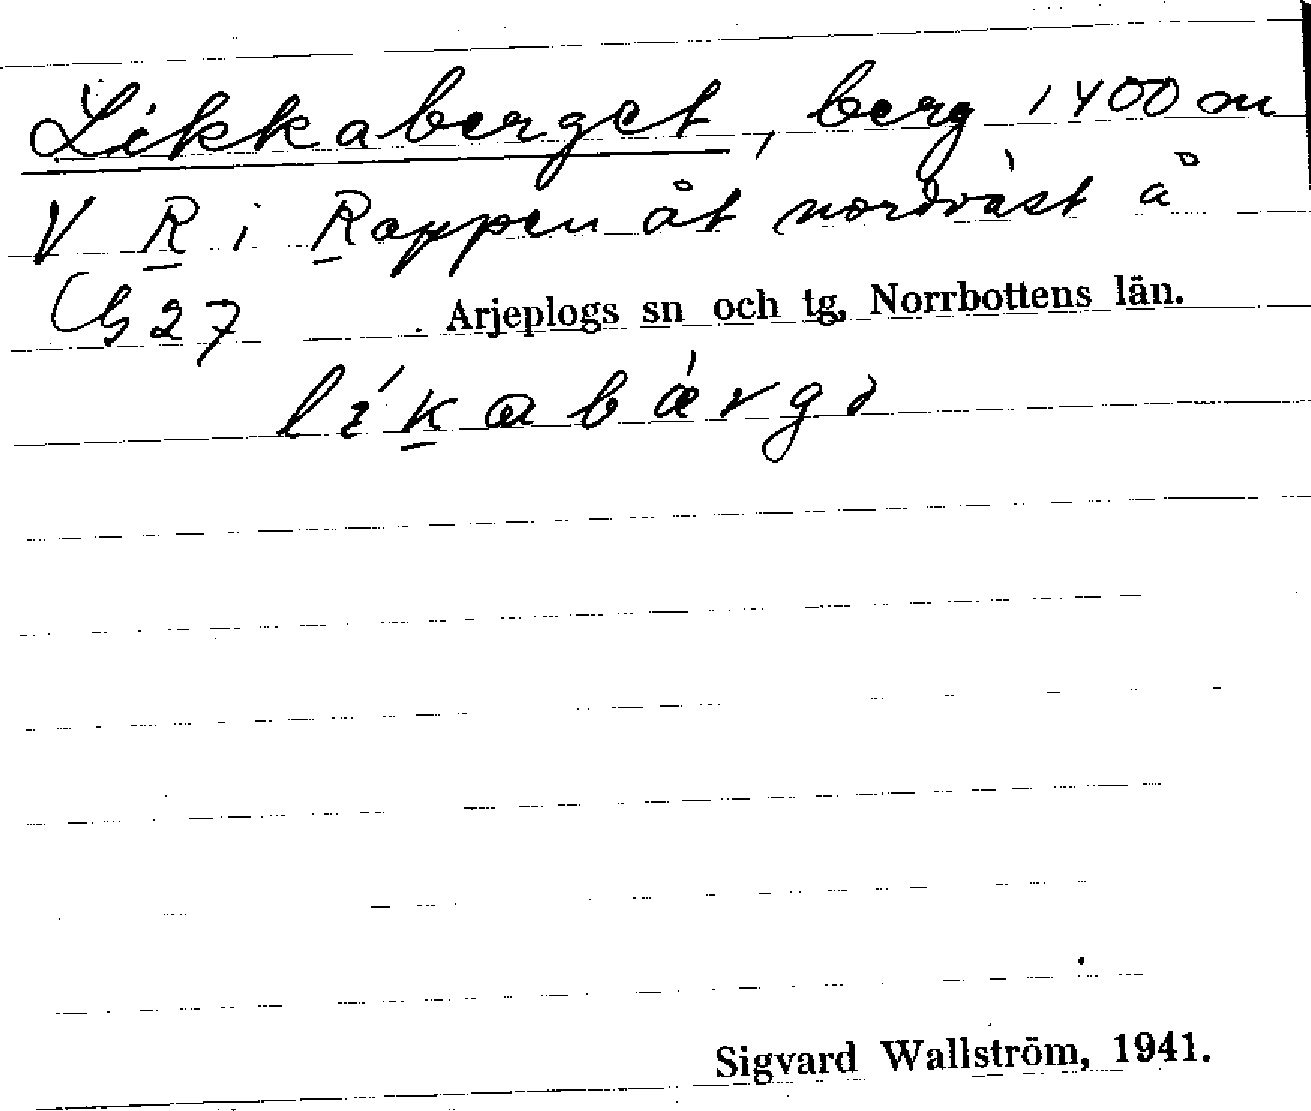 Likkaberget, berg 1400 m
V R i Rappen åt nordväst å
Gb 27 Arjeplogs sn och tg, Norrbottens län.
Sigvard Wallström, 1941.